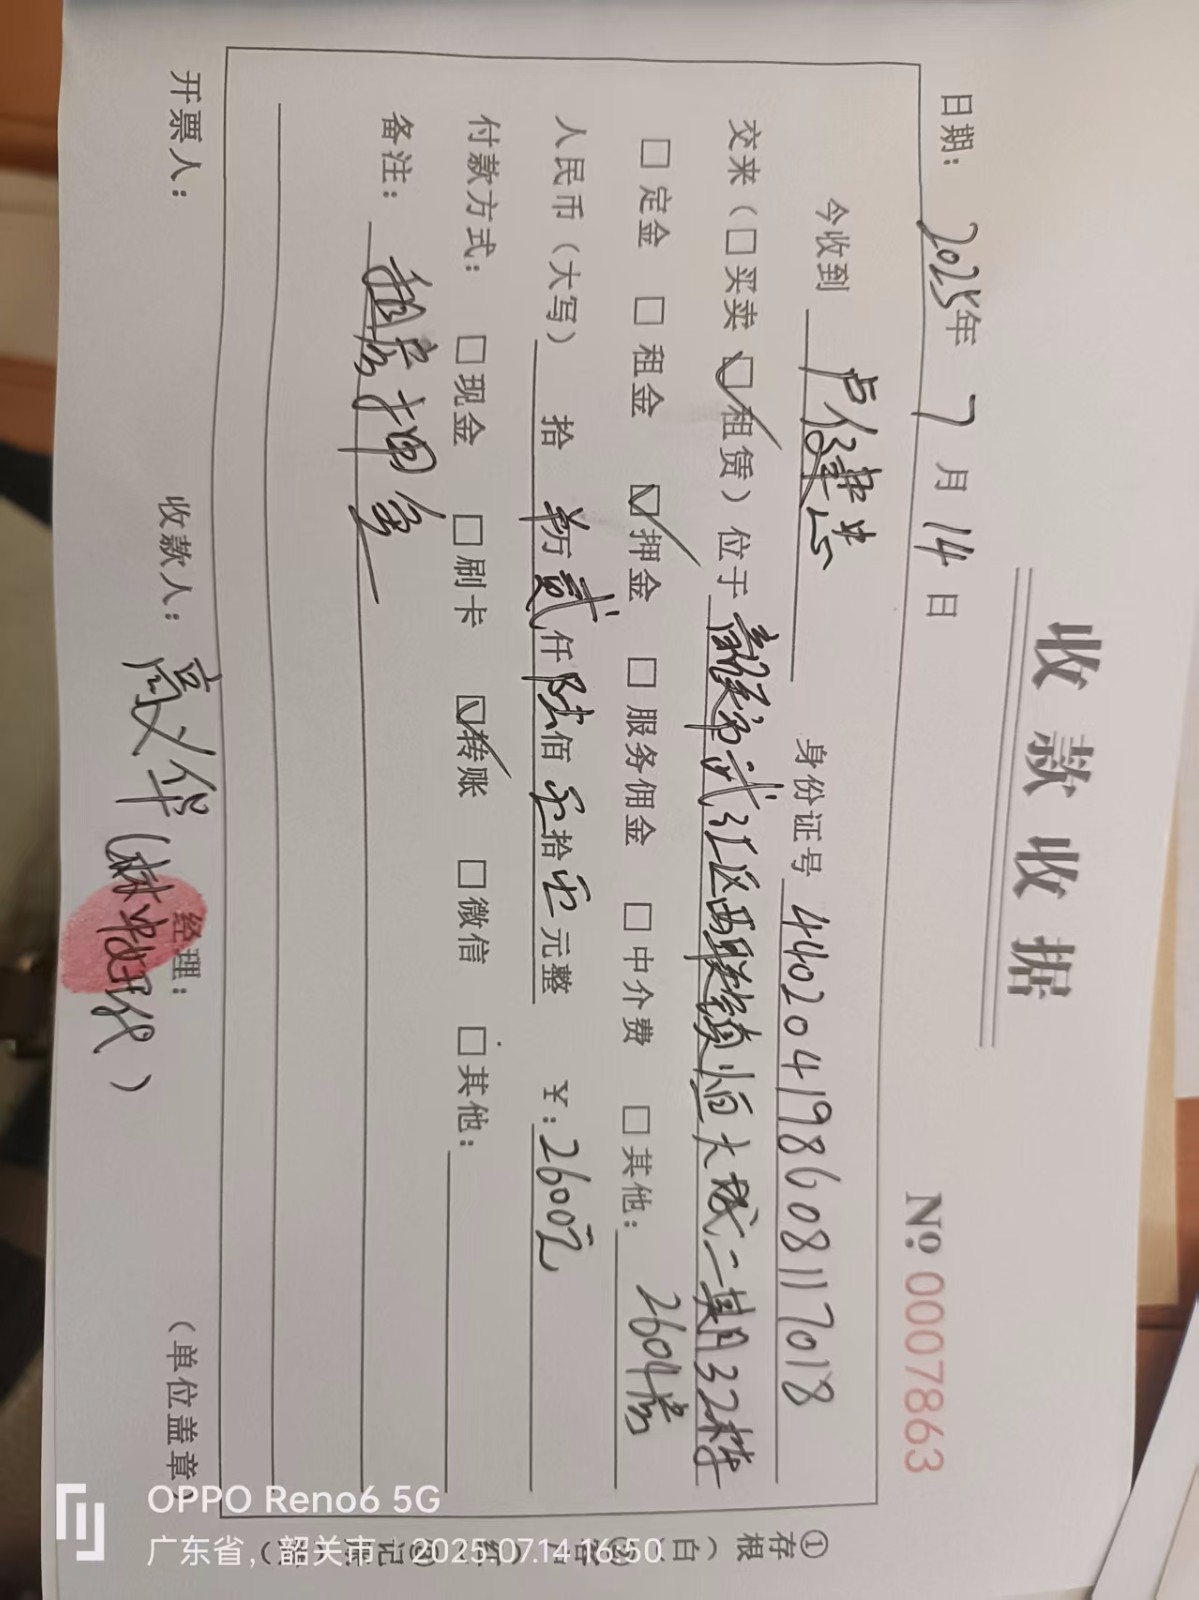 收款收据
№ 0007863
日期: 2025年 7月14日
今收到 卢健忠 身份证号 440204198608117018
交来（□买卖 ☑租赁）位于 韶关市武江区西联镇恒大城二期32栋
□定金 □租金 ☑押金 □服务佣金 □中介费 □其他: 2604房
人民币（大写） 拾 万贰仟陆佰零拾零元整 ￥: 2600元
付款方式: □现金 □刷卡 ☑转账 □微信 □其他:
备注: 租房押金
开票人: 收款人: 高义华 经理: （单位盖章）
①存根（白）
OPPO Reno6 5G
广东省，韶关市 2025.07.14 16:50